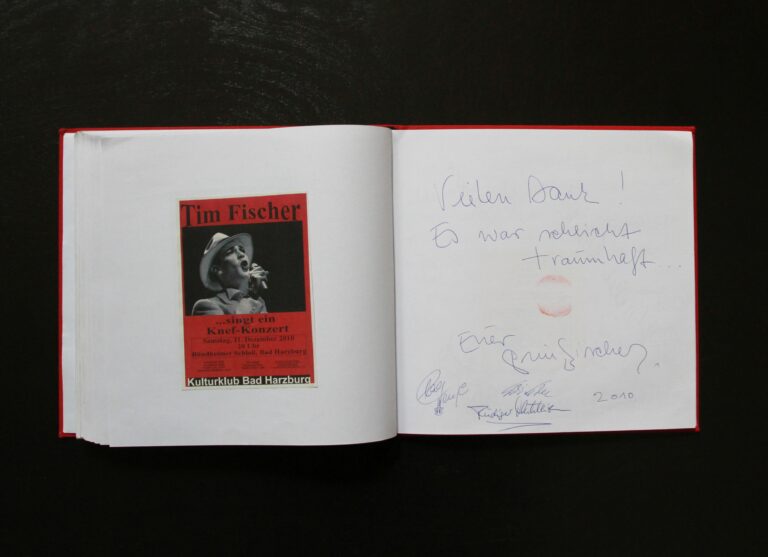 Tim Fischer
...singt ein
Knef-Konzert
Samstag, 11. Dezember 2010
20 Uhr
Bündheimer Schloß, Bad Harzburg
Kulturklub Bad Harzburg
Vielen Dank !
Es war schlicht
traumhaft...
Euer
Tim Fischer.
Rüdiger
2010